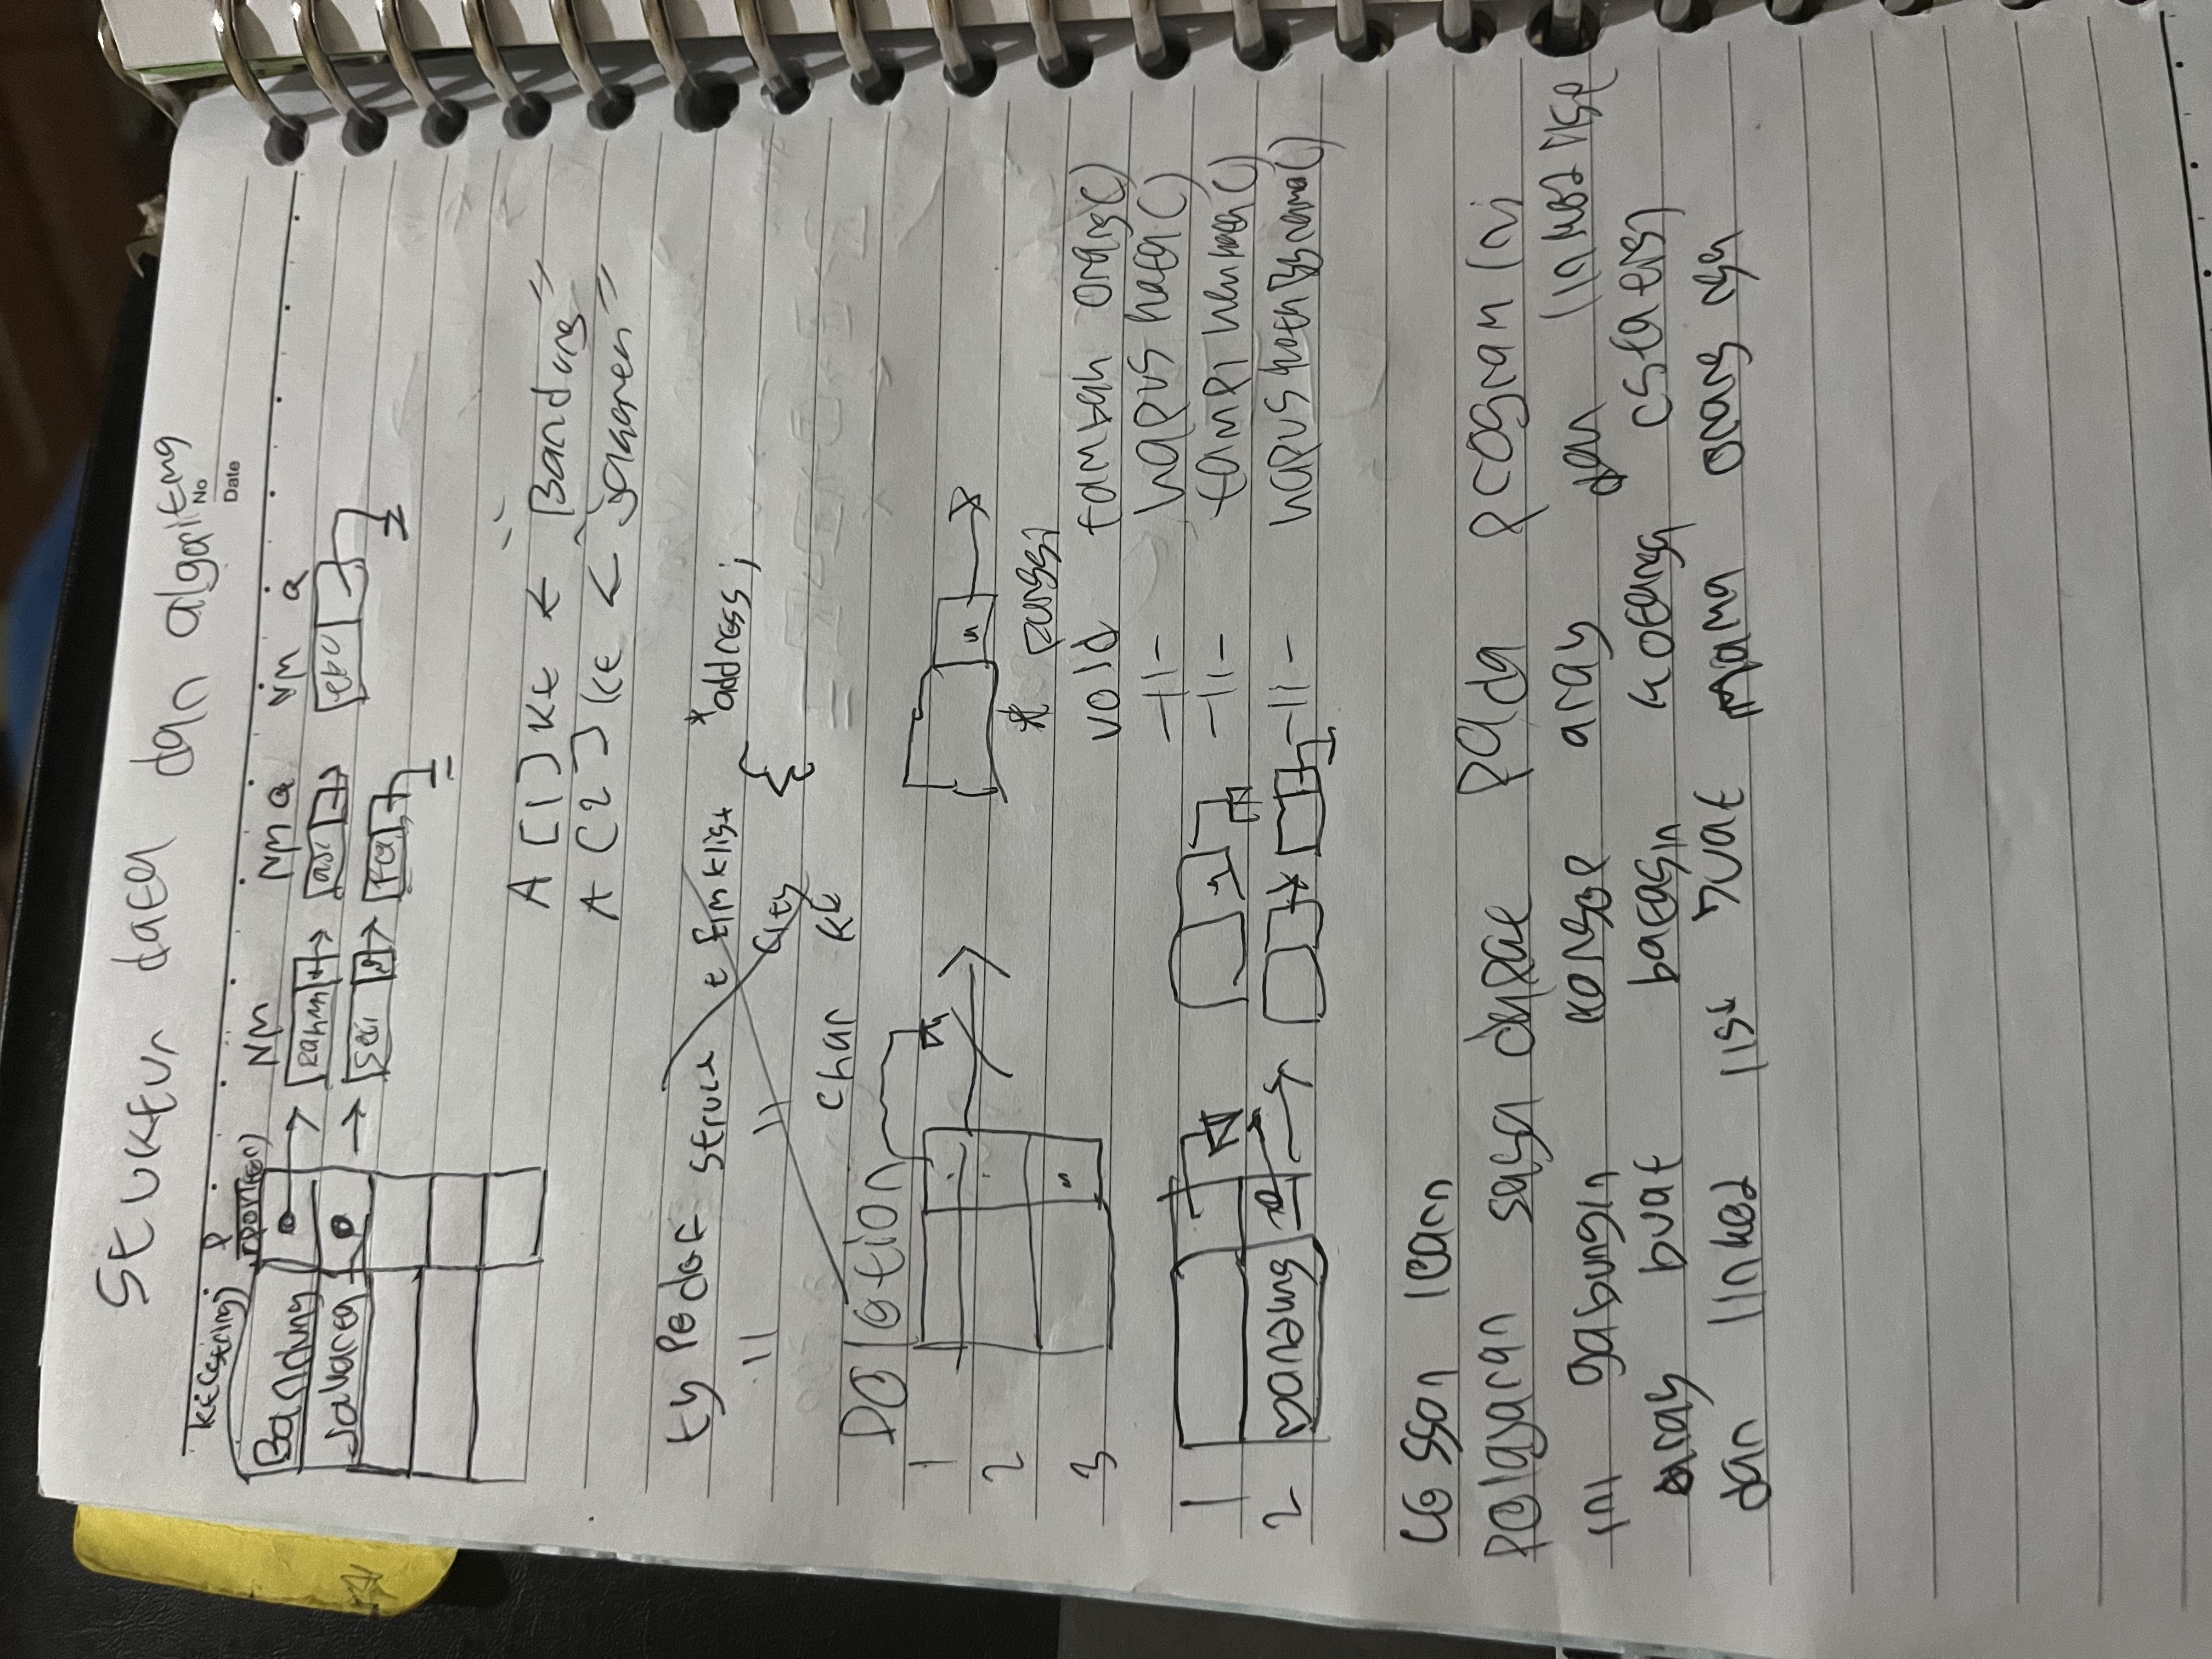 Struktur data dan algoritma
No
Date
kt(string) P
(pointer)
NM NM Q NM Q
Bandung Rahm
Jakarta
A [1] kt ← "Bandung"
A [2] kt ← "Jakarta"
typedef struct *address;
" " City {
char kt
Deletion
1
2
3
* Fungsi
void tambah orang()
-||- hapus kota()
-||- tampilkan kota()
-||- hapus kota By nama()
1
2 Bandung
Lesson learn
Pelajaran saya dapat Pada program ini
ini gabungin konsep aray dan linked list
aray buat batasin kotanya (statis)
dan linked list buat nama orang nya